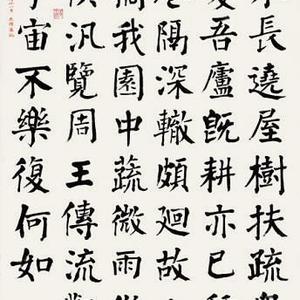 長遶屋樹扶疏
吾廬既耕亦已種
隔深轍頗廻故
我園中蔬微雨從
汎覽周王傳流
宇宙不樂復何如